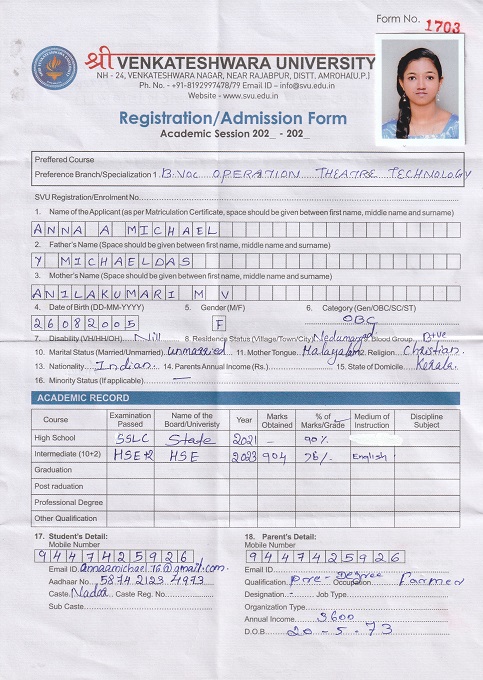 Form No. 1703
श्री VENKATESHWARA UNIVERSITY
NH - 24, VENKATESHWARA NAGAR, NEAR RAJABPUR, DISTT. AMROHA(U.P.)
Ph. No. - +91-8192997478/79 Email ID – info@svu.edu.in
Website - www.svu.edu.in
Registration/Admission Form
Academic Session 202_ - 202_
Preffered Course
Preference Branch/Specialization 1. B.VOC OPERATION THEATRE TECHNOLOGY
SVU Registration/Enrolment No.
1. Name of the Applicant (as per Matriculation Certificate, space should be given between first name, middle name and surname)
ANNA A MICHAEL
2. Father's Name (Space should be given between first name, middle name and surname)
Y MICHAELDAS
3. Mother's Name (Space should be given between first name, middle name and surname)
ANILAKUMARI M V
4. Date of Birth (DD-MM-YYYY) 5. Gender (M/F) 6. Category (Gen/OBC/SC/ST)
26082005 F OBC
7. Disability (VH/HH/OH) Nill 8. Residence Status (Village/Town/City) Nedumangad Blood Group B+ve
10. Marital Status (Married/Unmarried). unmarried 11. Mother Tongue. Malayalam 12. Religion. Christian.
13. Nationality. Indian. 14. Parents Annual Income (Rs.) 15. State of Domicile. Kerala.
16. Minority Status (If applicable). —
ACADEMIC RECORD
Course Examination Passed Name of the Board/Univeristy Year Marks Obtained % of Marks/Grade Medium of Instruction Discipline Subject
High School SSLC State 2021 – 90%
Intermediate (10+2) HSE+2 HSE 2023 904 76/- English
Graduation
Post raduation
Professional Degree
Other Qualification
17. Student's Detail: 18. Parent's Detail:
Mobile Number Mobile Number
9447425926 9447425926
Email ID. annaamichael76@gmail.com. Email ID
Aadhar No. 5874 2123 4973 Qualification. Pre-Degree Occupation. Farmer
Caste. Nadar Caste Reg. No. Designation. - Job Type.
Sub Caste. Organization Type.
Annual Income 3600
D.O.B. 20-5-73